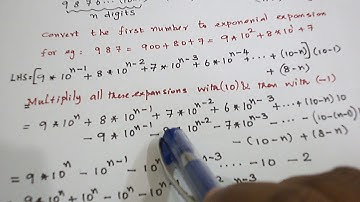 9 8 7 6
n digits
Convert the first number to exponential expansion
for eg: 987 = 900+80+7 = 9*10²+8*10¹+7
LHS=[9*10ⁿ⁻¹+8*10ⁿ⁻²+7*10ⁿ⁻³+6*10ⁿ⁻⁴+...+(10-n)](10-1)
+(8-n)
Multiplily all these expansions with (10) & then with (-1)
= 9*10ⁿ+8*10ⁿ⁻¹+7*10ⁿ⁻²+6*10ⁿ⁻³+...+(10-n)10
-9*10ⁿ⁻¹- 10ⁿ⁻²-7*10ⁿ⁻³-...
-(10-n)+(8-n)
= 9*10ⁿ-10ⁿ⁻¹-10ⁿ ...-10-2